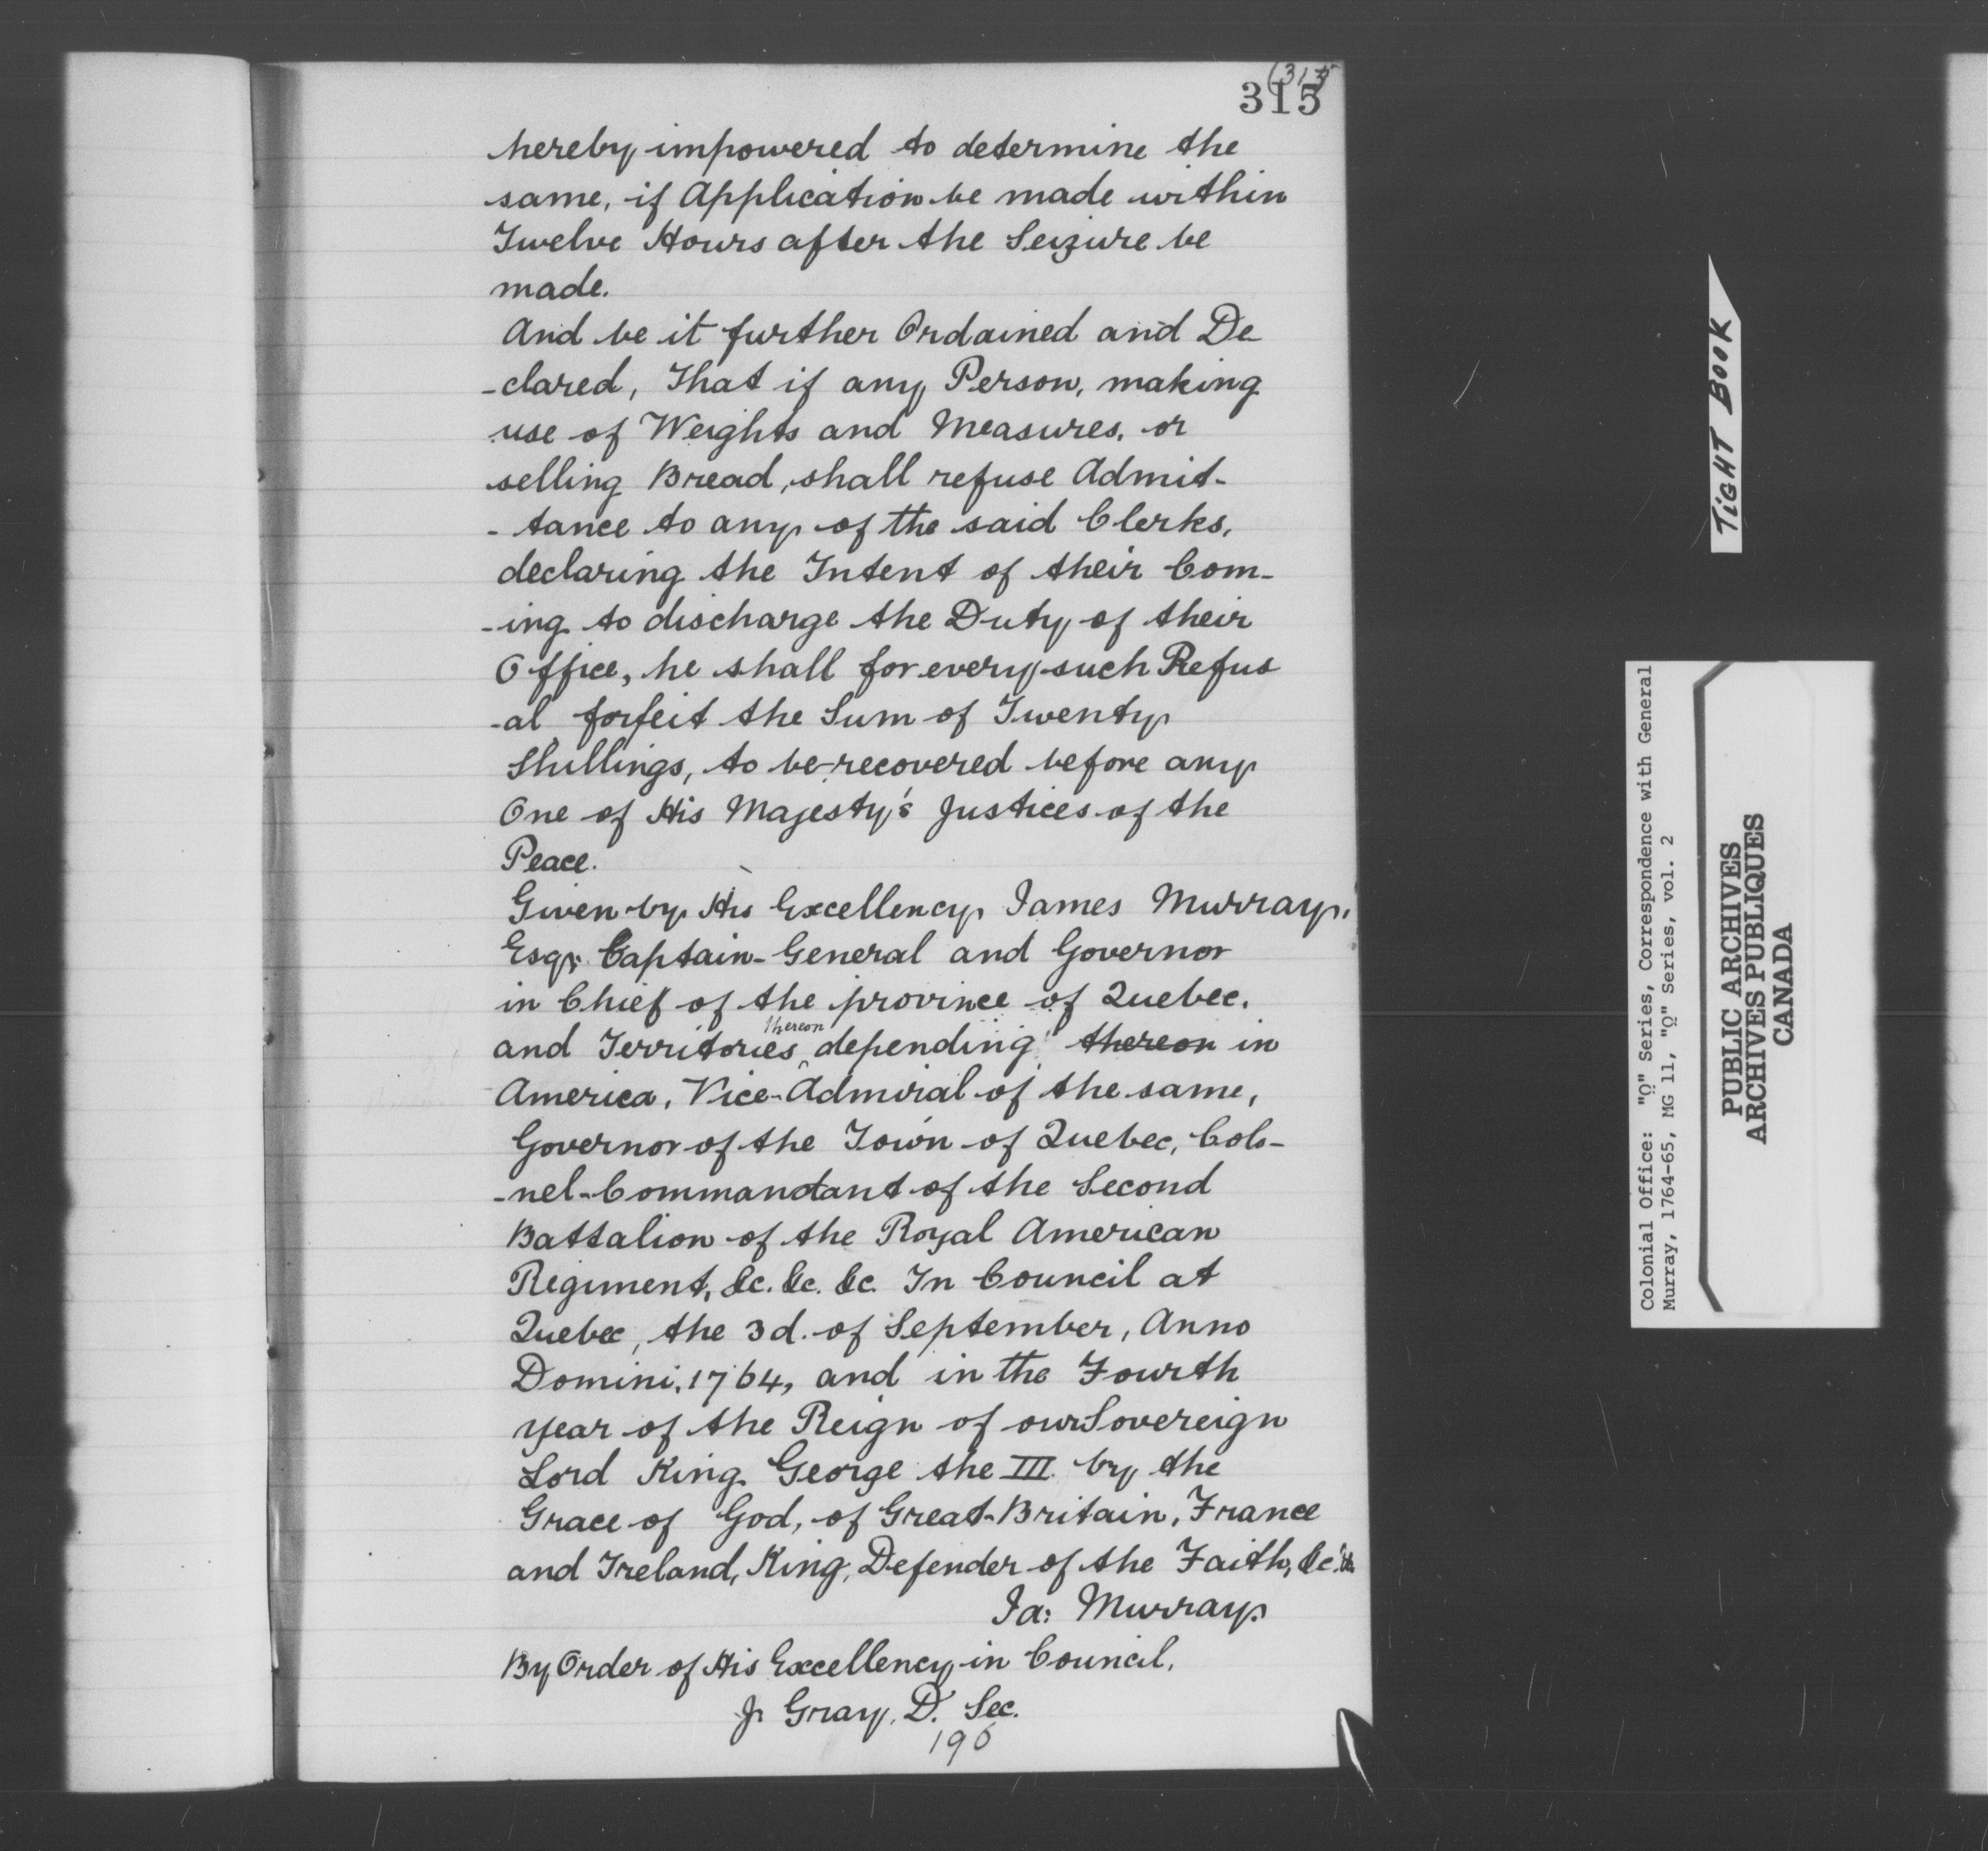 (315
315
hereby impowered to determine the
same, if Application be made within
Twelve Hours after the Seizure be
made.
And be it further Ordained and De
-clared, That if any Person, making
use of Weights and Measures, or
selling Bread, shall refuse Admit-
-tance to any of the said Clerks,
declaring the Intent of their Com-
-ing to discharge the Duty of their
Office, he shall for every such Refus
-al forfeit the Sum of Twenty
Shillings, to be recovered before any
One of His Majesty's Justices of the
Peace.
Given by His Excellency James Murray,
Esqr. Captain-General and Governor
in Chief of the province of Quebec,
thereon
and Territories depending thereon in
America, Vice-Admiral of the same,
Governor of the Town of Quebec, Colo-
-nel-Commandant of the Second
Battalion of the Royal American
Regiment, &c. &c. &c. In Council at
Quebec, the 3d. of September, Anno
Domini, 1764, and in the Fourth
Year of the Reign of our Sovereign
Lord King George the III. by the
Grace of God, of Great-Britain, France
and Ireland, King, Defender of the Faith, &c.
Ja: Murray.
By Order of His Excellency in Council,
J. Gray, D. Sec.
196
TIGHT BOOK
Colonial Office: "Q" Series, Correspondence with General
Murray, 1764-65, MG 11, "Q" Series, vol. 2
PUBLIC ARCHIVES
ARCHIVES PUBLIQUES
CANADA